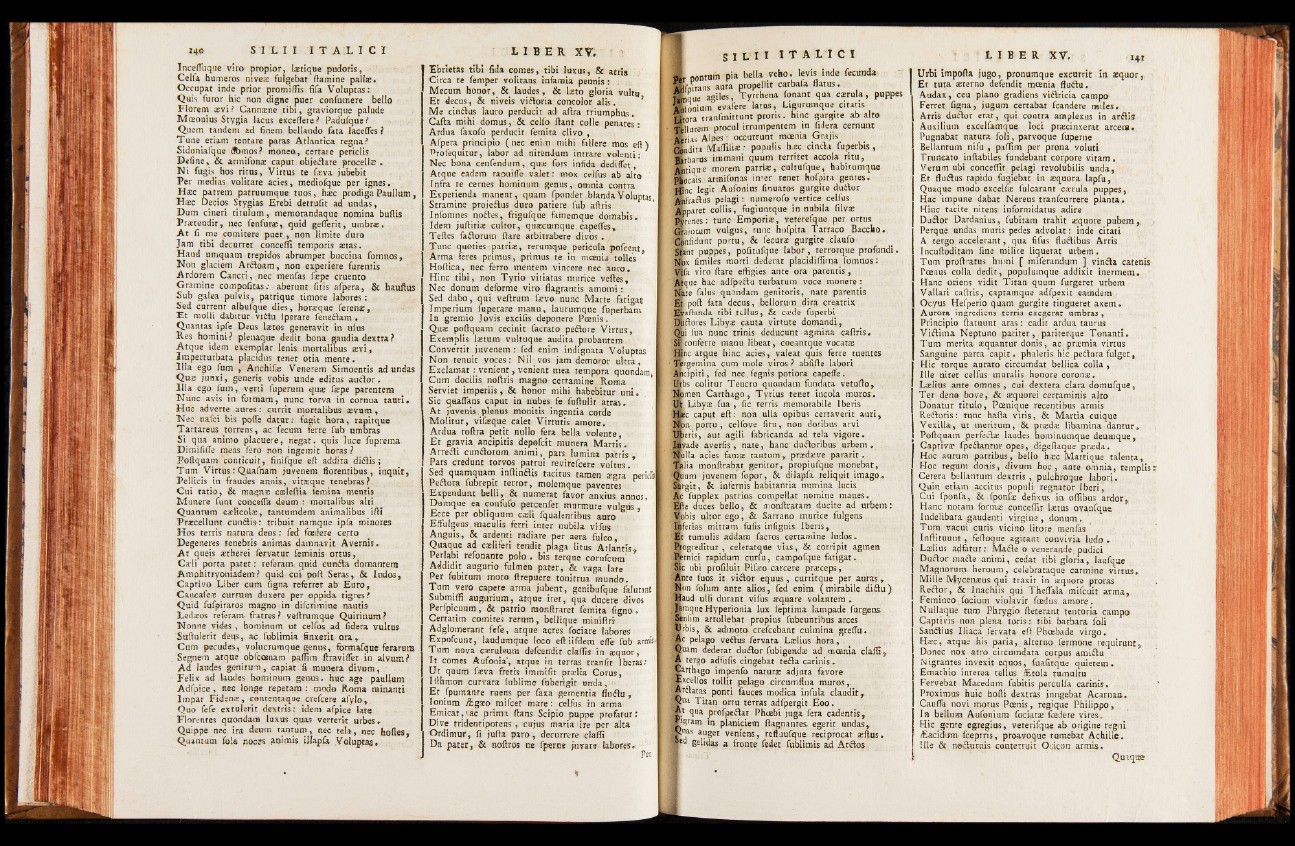 140 SILII ITALICI
Incessuque viro propior, lætique pudoris,
Celsa humeros niveæ fulgebat stamine pallæ.
Occupat inde prior promissis fisa Voluptas:
Quis furor hic non digne puer consumere bello
Florem ævi? Cannæne tibi, graviorque palude
Mœonius Stygia lacus excessere? Padusque?
Quem tandem ad finem bellando fata lacesses?
Tune etiam tentare paras Atlantica regna?
Sidoniasque domos? moneo, certare periclis
Desine, & armisonæ caput objectare procellæ.
Ni fugis hos ritus, Virtus te sæva jubebit
Per medias volitare acies, mediosque per ignes.
Hæc patrem patruumque tuos, hæc prodiga Paullum,
Hæc Decios Stygias Erebi detrusit ad undas,
Dum cineri titulum, memorandaque nomina bustis
Prætendit, nec sensuræ, quid gesserit, umbræ.
At si me comitere puer, non limite duro
Jam tibi decurret concessi temporis ætas.
Haud umquam trepidos abrumpet buccina somnos,
Non glaciem Arctoam, non experiere furentis
Ardorem Cancri, nec mensas sæpe cruento
Gramine compositas: aberunt sitis aspera, & haustus
Sub galea pulvis, patrique timore labores:
Sed current albusque dies, horæque serenæ,
Et molli dabitur victa sperare senectam.
Quantas ipse Deus lætos generavit in usus
Res homini? plenaque dedit bona gaudia dextra?
Atque idem exemplar lenis mortalibus ævi,
Imperturbata placidus tenet otia mente.
Illa ego sum, Anchisæ Venerem Simoentis ad undas
Quæ junxi, generis vobis unde editus auctor.
Illa ego sum, verti superum quæ sæpe parentem
Nunc avis in formam, nunc torva in cornua tauri.
Huc adverte aures: currit mortalibus ævum,
Nec nasci bis posse datur: fugit hora, rapitque
Tartareus torrens, ac secum ferre sub umbras
Si qua animo placuere, negat. quis luce suprema
Dimisisse meas sero non ingemit horas?
Postquam conticuit, finisque est addita dictis;
Tum Virtus: Quasnam juvenem florentibus, inquit,
Pellicis in fraudes annis, vitæque tenebras?
Cui ratio, & magnæ cælestia semina mentis
Munere sunt concessa deum: mortalibus alti
Quantum cælicolæ, tantumdem animalibus isti
Præcellunt cunctis: tribuit namque ipsa minores
Hos terris natura deos: sed fœdere certo
Degeneres tenebris animas damnavit Avernis.
At queis ætherei servatur seminis ortus,
Cæli porta patet: referam quid cuncta domantem
Amphitryoniadem? quid cui post Seras, & Indos,
Captivo Liber cum signa referret ab Euro,
Caucaseæ currum duxere per oppida tigres?
Quid suspiratos magno in discrimine nautis
Ledæos referam fratres? vestrumque Quirinum?
Nonne vides, hominum ut celsos ad sidera vultus
Sustulerit deus, ac sublimia finxerit ora,
Cum pecudes, volucrumque genus, formasque ferarum
Segnem atque obscœnam passim stravisset in alvum?
Ad laudes genitum, capiat si munera divum,
Felix ad laudes hominum genus. huc age paullum
Adspice, nec longe repetam: modo Roma minanti
Impar Fidenæ, contentaque crescere asylo,
Quo sese extulerit dextris: idem aspice late
Florentes quondam luxus quas verterit urbes.
Quippe nec ira deum tantum, nec tela, nec hostes,
Quantum sola noces animis illapsa Voluptas.
LIBER XV.
Ebrietas tibi fida comes, tibi luxus, & atris
Circa te semper volitans infamia pennis:
Mecum honor, & laudes, & læto gloria vultu,
Et decus, & niveis victoria concolor alis.
Me cinctus lauro perducit ad astra triumphus.
Casta mihi domus, & celso stant colle penates:
Ardua saxoso perducit semita clivo,
Aspera principio (nec enim mihi fallere mos est)
Prosequitur, labor ad nitendum intrare volenti:
Nec bona censendum, quæ fors infida dedisset.
Atque eadem rapuisse valet: mox celsus ab alto
Infra te cernes hominum genus, omnia contra
Experienda manent, quam spondet blanda Voluptas.
Stramine projectus duro patiere sub astris
Insomnes noctes, frigusque famemque domabis.
Idem justitiæ cultor, quæcumque capesses,
Testes factorum stare arbitrabere divos.
Tunc quoties patriæ, rerumque pericula poscent,
Arma feres primus, primus te in mœnia tolles
Hostica, nec ferro mentem vincere nec auro.
Hinc tibi, non Tyrio vitiatas murice vestes,
Nec donum deforme viro flagrantis amomi:
Sed dabo, qui vestrum sævo nunc Marte fatigat
Imperium superare manu, laurumque superbam
In gremio Jovis excisis deponere Pœnis.
Quæ postquam cecinit sacrato pectore Virtus,
Exemplis lætum vultuque audita probantem
Convertit juvenem: sed enim indignata Voluptas
Non tenuit voces: Nil vos jam demoror ultra,
Exclamat: venient, venient mea tempora quondam,
Cum docilis nostris magno certamine Roma
Serviet imperiis, & honor mihi habebitur uni.
Sic quassans caput in nubes se sustulit atras.
At juvenis plenus monitis ingentia corde
Molitur, visæque calet Virtutis amore.
Ardua rostra petit nullo fera bella volente,
Et gravia ancipitis deposcit munera Martis.
Arrecti cunctorum animi, pars lumina patris,
Pars credunt torvos patrui revirescere voltus.
Sed quamquam instinctis tacitus tamen ægra periclis
Pectora subrepit terror, molemque paventes
Expendunt belli, & numerat favor anxius annos.
Dumque ea confuso percenset murmure vulgus,
Ecce per obliquum cæli squalentibus auro
Effulgens maculis ferri inter nubila visus
Anguis, & ardenti radiare per aera sulco,
Quaque ad cæliferi tendit plaga litus Atlantis,
Perlabi resonante polo. bis terque coruscum
Addidit augurio fulmen pater, & vaga late
Per subitum moto strepuere tonitrua mundo.
Tum vero capere arma jubent, genibusque salutant
Submissi augurium, atque iret, qua ducere divos
Perspicuum, & patrio monstraret semita signo.
Certatim comites rerum, bellique ministri
Adglomerant sese, atque acres sociare labores
Exposcunt, laudumque loco est isdem esse sub armis.
Tum nova cæruleum descendit classis in æquor,
It comes Ausonia, atque in terras transit Iberas:
Ut quum sæva fretis immisit prœlia Corus,
Isthmon curvata sublime superigit unda,
Et spumante ruens per saxa gementia fluctu,
Ionium Ægæo miscet mare: celsus in arma
Emicat, ac prima stans Scipio puppe profatur:
Dive tridentipotens, cujus maria ire per alta
Ordimur, si justa paro, decurrere classi
Da pater, & nostros ne sperne juvare labores.
Per
SILII ITALICI
Per pontum pia bella veho. levis inde secunda
Adspirans aura propellit carbasa flatus.
Jamque agiles, Tyrrhena sonant qua cærula, puppes
Ausonium evasere latus, Ligurumque citatis
Litora tranmittunt proris. hinc gurgite ab alto
Tellurem procul irrumpentem in sidera cernunt
Aerias Alpes: occurrunt mœnia Grajis
Condita Massiliæ: populis hæc cincta superbis,
Barbarus immani quum territet accola ritu,
Antiquæ morem patriæ, cultusque, habitumque
Phocais armisonas inter tenet hospita gentes.
Hinc legit Ausonius sinuatos gurgite ductor
Anfractus pelagi: numeroso vertice celsus
Apparet collis, fugiuntque in nubila silvæ
Pyrenes: tunc Emporiæ, veteresque per ortus
Grajorum vulgus, tunc hospita Tarraco Baccho.
Confidunt portu, & securæ gurgite clauso
Stant puppes, positusque labor, terrorque profundi.
Nox similes morti dederat placidissima somnos:
Visa viro stare effigies ante ora parentis,
Atque hac adspectu turbatum voce monere:
Nate salus quondam genitoris, nate parentis
Et post fata decus, bellorum dira creatrix
Evastanda tibi tellus, & cæde superbi
Ductores Libyæ cauta virtute domandi,
Qui sua nunc trinis deducunt agmina castris.
Si conferre manu libeat, coeantque vocatæ
Hinc atque hinc acies, valeat quis ferre ruentes
Tergemina cum mole viros? absiste labori
Ancipiti, sed nec segnis potiora capesse.
Urbs colitur Teucro quondam fundata vetusto,
Nomen Carthago, Tyrius tenet incola muros.
Ut Libyæ sua, sic terris memorabile Iberis
Hæc caput est: non ulla opibus certaverit auri,
Non portu, celsove situ, non doribus arvi
Ubertis, aut agili fabricanda ad tela vigore.
Invade aversis, nate, hanc ductoribus urbem.
Nulla acies famæ tantum, prædæve pararit.
Talia monstrabat genitor, propiusque monebat,
Quum juvenem sopor, & dilapsa reliquit imago.
Surgit, & infernis habitantia numina lucis
Ac supplex patrios compellat nomine manes.
Este duces bello, & monstratam ducite ad urbem:
Vobis ultor ego, & Sarrano murice fulgens
Inferias mittam fusis insignis Iberis,
Et tumulis addam sacros certamine ludos.
Progreditur, celeratque vias, & corripit agmen
Pernici rapidum cursu, camposque fatigat.
Sic ubi prosiluit Pisæo carcere præceps,
Ante suos it victor equus, curritque per auras,
Non solum ante alios, sed enim (mirabile dictu)
Haud ulli dorant visus æquare volantem.
Jamque Hyperionia lux septima lampade surgens
Sensim attollebat propius subeuntibus arces
Urbis, & admoto crescebant culmina gressu.
Ac pelago vectus servata Lælius hora,
Quam dederat ductor subigendæ ad mœnia classi,
A tergo adfusis cingebat tecta carinis.
Carthago impenso naturæ adjuta favore
Excelsos tollit pelago circumflua muros,
Arctatas ponti fauces modica insula claudit,
Qua Titan ortu terras adspergit Eoo.
At qua prospectat Phœbi juga sera cadentis,
Pigram in planiciem stagnantes egerit undas,
Quas auget veniens, refluusque reciprocat æstus.
Sed gelidas a fronte sedet sublimis ad Arctos
LIBER XV. 141
Urbi imposta jugo, pronumque excurrit in æquor,
Et tuta æterno defendit mœnia fluctu.
Audax, ceu plano gradiens victricia campo
Ferret signa, jugum certabat scandere miles.
Arris ductor erat, qui contra amplexus in arctis
Auxilium excelsamque loci præcinxerat arcem.
Pugnabat natura soli, parvoque superne
Bellantum nisu, passim per prona voluti
Truncato instabiles fundebant corpore vitam.
Verum ubi concessit pelagi revolubilis unda,
Et fluctus rapido fugiebat in æquora lapsu,
Quaque modo excelsæ sulcarant cærula puppes,
Hac impune dabat Nereus transcurrere planta.
Hinc tacite nitens informidatus adire
Ductor Dardanius, subitam trahit æquore pubem,
Perque undas muris pedes advolat: inde citati
A tergo accelerant, qua fisus fluctibus Arris
Incustoditam sine milite liquerat urbem.
Tum prostratus humi [ miserandum ] vincta catenis
Pœnus colla dedit, populumque addixit inermem.
Hanc oriens vidit Titan quum surgeret urbem
Vallari castris, captamque adspexit eamdem
Ocyus Hesperio quam gurgite tingueret axem.
Aurora ingrediens terris exegerat umbras,
Principio statuunt aras: cadit ardua taurus
Victima Neptuno pariter, pariterque Tonanti.
Tum merita æquantur donis, ac præmia virtus
Sanguine parta capit. phaleris hic pectora fulget,
Hic torque aurato circumdat bellica colla,
Ille nitet celsus muralis honore coronæ.
Lælius ante omnes, cui dextera clara domusque,
Ter deno bove, & æquorei certaminis alto
Donatur titulo, Pœnique recentibus armis
Rectoris: tunc hasta viris, & Martia cuique
Vexilla, ut meritum, & prædæ libamina dantur.
Postquam perfectæ laudes hominumque deumque,
Captivæ spectantur opes, digestaque præda.
Hoc aurum patribus, bello hæc Martique talenta,
Hoc regum donis, divum hoc, ante omnia, templis:
Cetera bellantum dextris, pulchroque labori.
Quin etiam accitus populi regnator Iberi,
Cui sponsa, & sponsæ defixus in ossibus ardor,
Hanc notam formæ concessit lætus ovansque
Indelibata gaudenti virgine, donum.
Tum vacui curis vicino litore mensas
Instituunt, festoque agitant convivia ludo.
Lælius adfatur: Macte o venerande pudici
Ductor macte animi, cedat tibi gloria, lausque
Magnorum heroum, celebrataque carmine virtus.
Mille Mycenæus qui traxit in æquore proras
Rector, & Inachiis qui Thessala miscuit arma,
Femineo socium violavit fœdus amore.
Nullaque tum Phrygio steterant tentoria campo
Captivis non plena toris: tibi barbara soli
Sanctius Iliaca servata est Phœbade virgo.
Hæc, atque his paria, alterno sermone requirunt,
Donec nox atro circumdata corpus amictu
Nigrantes invexit equos, suasitque quietem.
Emathio interea tellus Ætola tumultu
Fervebat Macedum subitis perculsa carinis.
Proximus huic hosti dextras jungebat Acarnan.
Caussa novi motus Pœnis, regique Philippo,
In bellum Ausonium sociatæ fœdere vires.
Hic gente egregius, veterisque ab origine regni
Æacidum sceptris, proavoque tumebat Achille.
Ille & nocturnis conterruit Oricon armis.
Quaque